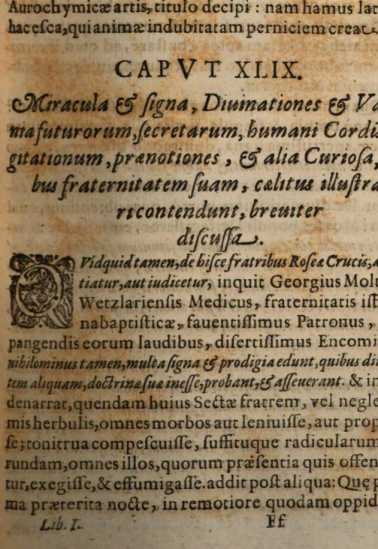 Aurochymicæ artis, titulo decipi : nam hamus lat
hac esca, qui animæ indubitatam perniciem creat.
CAPVT XLIX.
Miracula & signa, Diuinationes & Va
nia futurorum, secretarum, humani Cordis
gitationum, prænotiones, & alia Curiosa,
bus fraternitatem suam, cælitus illustra
ri contendunt, breuiter
discussa.
QVidquid tamen, de hisce fratribus Roseæ Crucis, a
tiatur, aut iudicetur, inquit Georgius Molt
Wetzlariensis Medicus, fraternitatis ist
nabaptisticæ, fauentissimus Patronus,
pangendis eorum laudibus, disertissimus Encomi
nihilominus tamen, multa signa & prodigia edunt, quibus di
tem aliquam, doctrinæ suæ inesse, probant, & asseuerant. & in
denarrat, quendam huius Sectæ fratrem, vel negle
mis herbulis, omnes morbos aut leniuisse, aut prop
se; tonitrua compescuisse, suffituque radicularum
rundam, omnes illos, quorum præsentia quis offen
tur, exegisse, & effumigasse. addit post aliqua: Quę p
ma præterita nocte, in remotiore quodam oppid
Lib. I. Ff